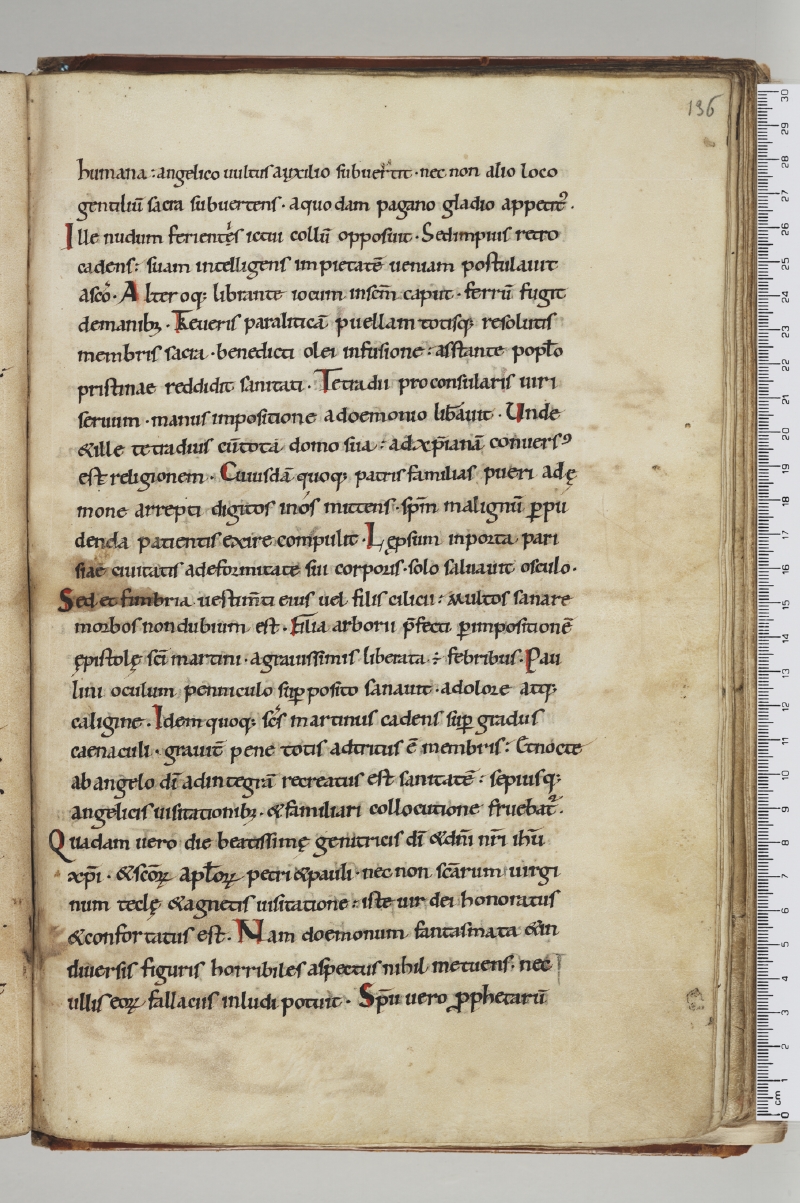 136
humana : angelico uultus auxilio subuertit · nec non alio loco
gentiliū sacra subuertens · aquodam pagano gladio appetit᷒ .
Ille nudum ferientis ictui collū opposuit · Sed impius retro
cadens : suam intelligens impietatē ueniam postulauit
asc̄o · Alteroq; librante iocum insc̄m caput · ferrū fugit
demanibꝫ . Treueris paraliticā puellam totisq; resolutis
membris sacra · benedicti olei infusione : asstante popl̄o
pristinae reddidit sanitati . Tetradii proconsularis uiri
seruum · manus impositione adoemonio lib̄auit · Unde
&ille tetradius cū tota domo sua : adxp̄ianā conuersꝰ
est religionem · Cuiusdā quoq; patris familias pueri adę
mone arrepti digitos inós mittens · sp̄m malignū ꝑpu
denda patientis exire compulit · Lęprosum inporta pari
siae ciuitatis adeformitate sui corporis · solo saluauit osculo ·
Sed et fimbria uestim̄ti eius uel filis cilicii : multos sanare
morbos non dubium est · Filia arborii p̄fecti ꝑ impositionē
epistolę sc̄i martini · agrauissimis liberata : febribus · Pau
lini oculum penniculo suꝑposito sanauit · adolore atq;
caligine · Idem quoq; sc̄s martinus cadens suꝑ gradus
caenaculi · grauit̄ pene totis adtritus ē membris : Et nocte
ab angelo dī adintegrā recreatus est sanitatē : sepiusq;
angelicis uisitationibꝫ · & familiari collocutione fruebat᷒ .
Quadam uero die beatissimę genitricis dī &dn̄i nr̄i ihū
xp̄i · &sc̄oꝝ apl̄oꝝ petri &pauli · nec non sc̄arum uirgi
num teclę &agnetis uisitatione : iste uir dei honoratus
&confortatus est · Nam doemonum fantasmata &in
diuersis figuris horribiles aspectus nihil metuens · nec
ullis eoꝝ fallaciis inludi potuit · Sp̄u uero ꝓphetarū
30
29
28
27
26
25
24
23
22
21
20
19
18
17
16
15
14
13
12
11
10
9
8
7
6
5
4
3
2
1
cm
0